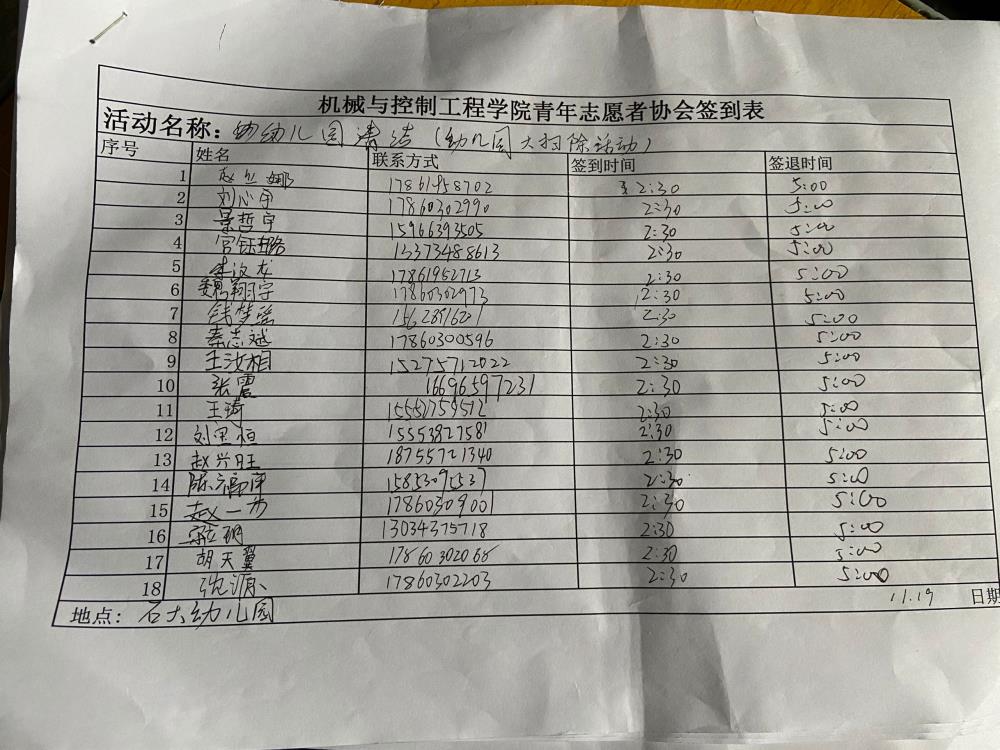 机械与控制工程学院青年志愿者协会签到表
活动名称：幼幼儿园清洁（幼儿园大扫除活动）
序号 姓名 联系方式 签到时间 签退时间
1 赵丝娜 17861958702 2:30 5:00
2 刘心宇 17860302990 2:30 5:00
3 景哲宇 15966393505 2:30 5:00
4 宫钰璐 15373488613 2:30 5:00
5 龙 17861952713 2:30 5:00
6 魏翔宇 17860302973 2:30 5:00
7 钱梦莹 2:30 5:00
8 秦志斌 17860300596 2:30 5:00
9 王汝相 15275712022 2:30 5:00
10 张震 16696597231 2:30 5:00
11 王琦 2:30 5:00
12 刘恒 15553827581 2:30 5:00
13 赵兴旺 18755721340 2:30 5:00
14 陈福 2:30 5:00
15 赵一 17860309001 2:30 5:00
16 玥 13034375718 2:30 5:00
17 胡天翼 17860302065 2:30 5:00
18 沈源 17860302203 2:30 5:00
地点：石大幼儿园 11.19 日期